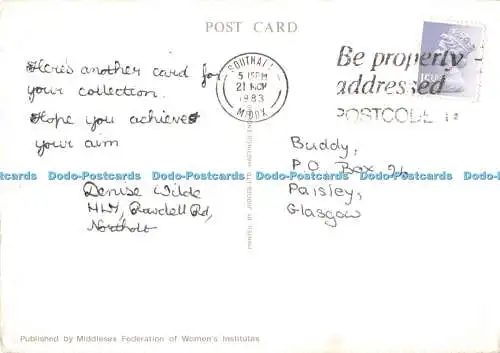 POST CARD
SOUTHALL
5 15PM
21 NOV
1983
MIDDX
Be properly
addressed
POSTCODE it
Here's another card for
your collection.
Hope you achieve
your aim
Denise Wilde
Rowdell Rd,
Northolt
Buddy,
P.O. Box 26
Paisley,
Glasgow
Dodo-Postcards Dodo-Postcards Dodo-Postcards Dodo-Postcards Dodo-Postcards
PRINTED BY JUDGES LTD HASTINGS
Published by Middlesex Federation of Women's Institutes